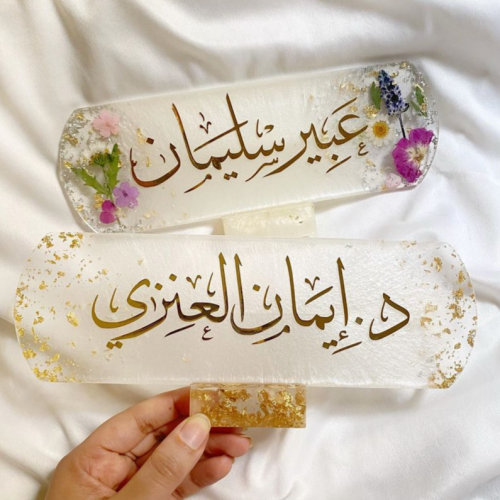 عبير سليمان
د. إيمان العنزي